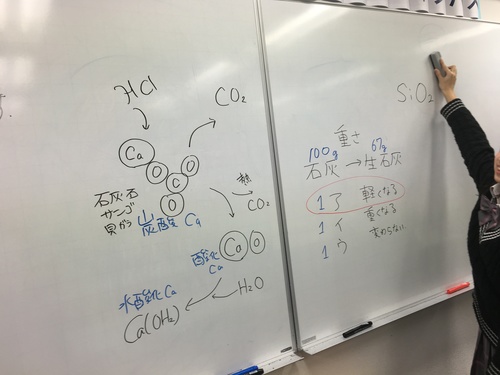 HCl
CO₂
Ca
O
O
C
O
石灰石
サンゴ
貝がら
炭酸Ca
熱
CO₂
酸化
Ca
Ca O
水酸化Ca
H₂O
Ca(OH₂)
SiO₂
重さ
100g 67g
石灰→生石灰
1ア 軽くなる
1イ 重くなる
1ウ 変わらない